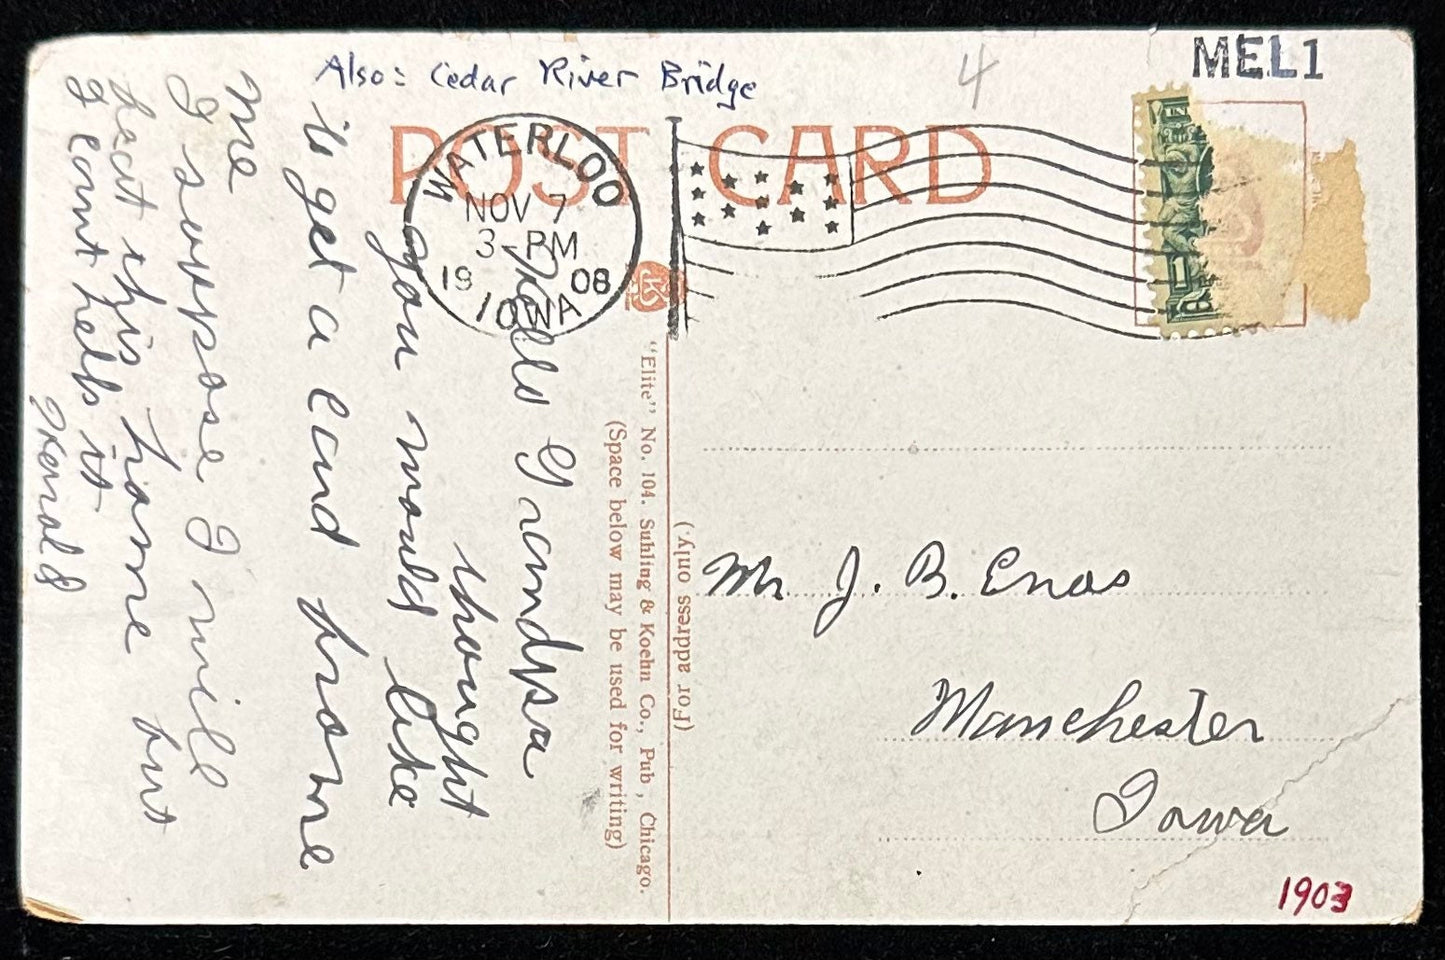 Also: Cedar River Bridge
4
MEL1
POST CARD
WATERLOO
NOV 7
3-PM
19 08
IOWA
"Elite" No. 104. Suhling & Koehn Co., Pub, Chicago.
(Space below may be used for writing)
(For address only.)
Hello Grandpa
thought
you would like
to get a card from
me
I suppose I will
beat this home but
I cant help it
Harold
Mr J. B. Enos
Manchester
Iowa
1903